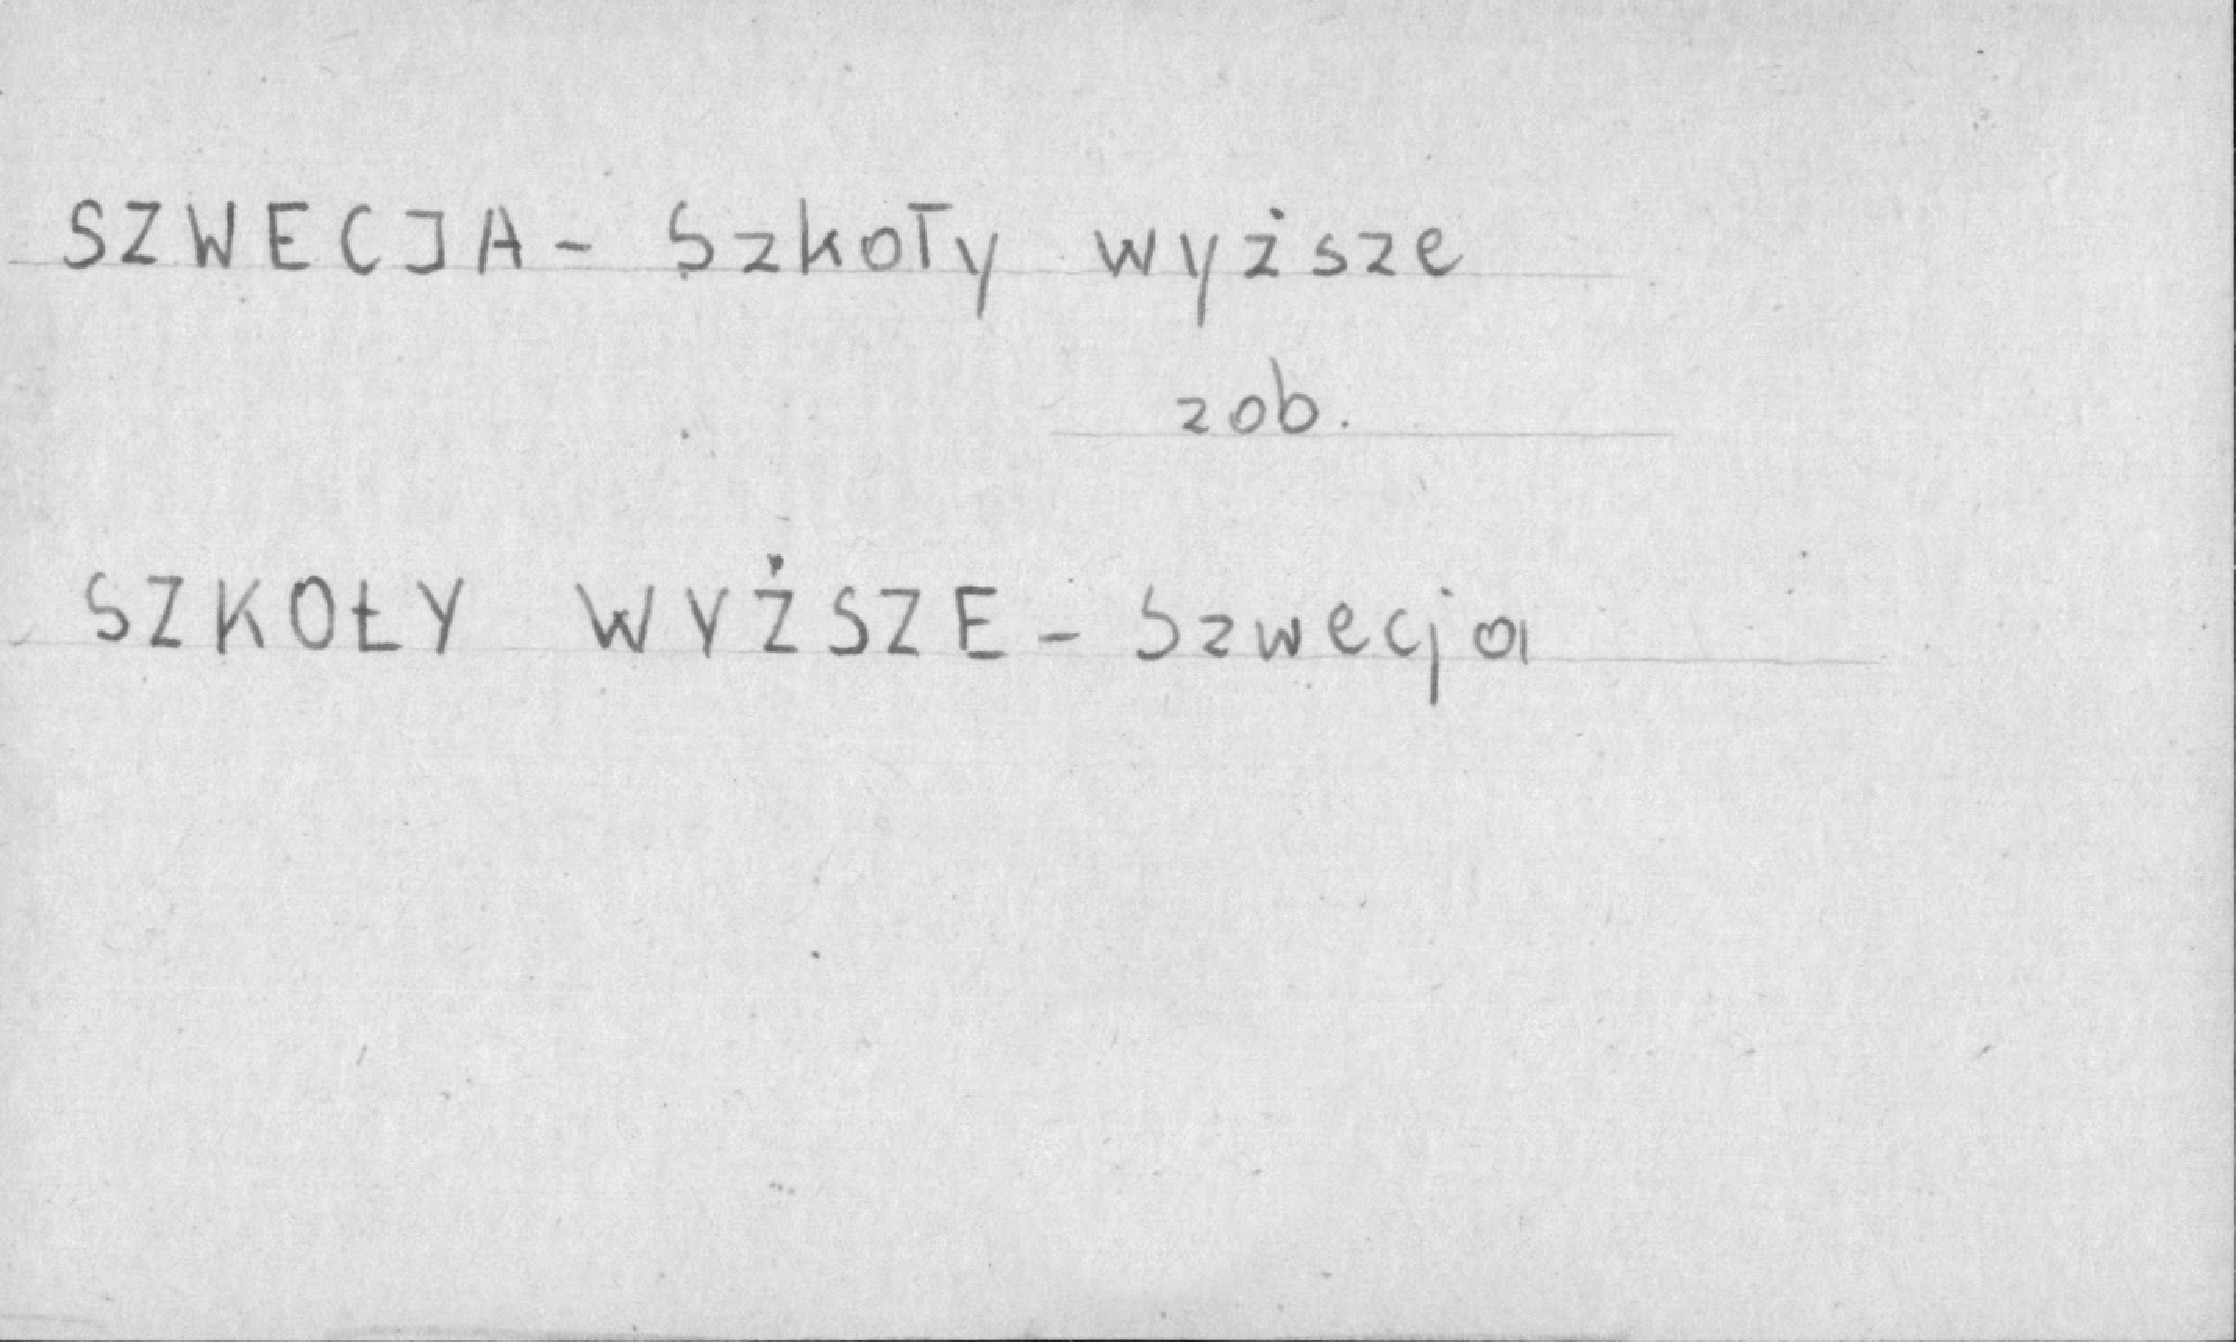 SZWECJA - Szkoły wyższe
zob.
SZKOŁY WYŻSZE - Szwecja